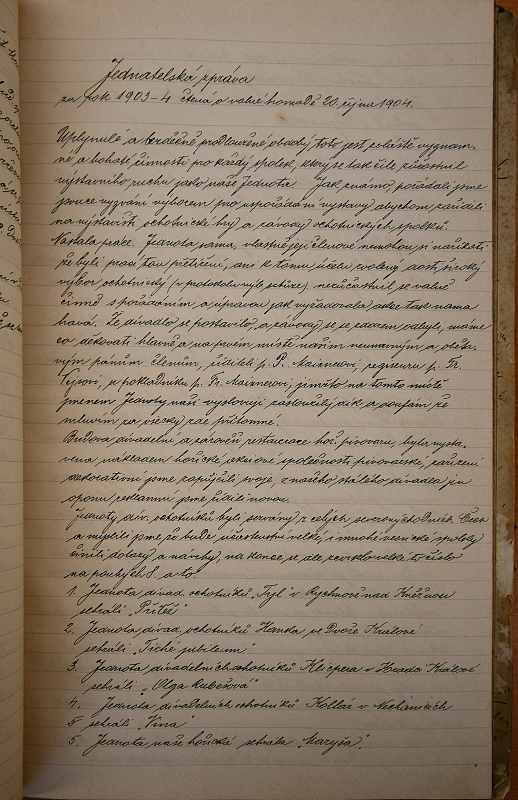 Jednatelská zpráva
za rok 1903-4 čtená o valné hromadě 20. října 1904.
Uplynulé a srdečně prodloužené období toto jest zvláště význam-
né a bohaté činností pro každý spolek, který se tak čile zúčastnil
výstavního ruchu jako naše Jednota. Jak známo, pořádali jsme
jsouce vyzváni výborem pro uspořádání výstavy abychom zařídili
na výstavišti ochotnické hry a závody ochotnických spolků.
Nastala práce. Jednota sama, vlastně její členové nemohou si naříkati
že byli prací tou přetíženi, ani k tomu účelu zvolený dosti široký
výbor ochotnický (v protokolu výb. schůze) nezúčastnil se valně
činně s pořádáním a úpravou jak vyžadovala akce tak nama-
havá. Že divadlo se postavilo a závody se se zdarem odbyly, máme
co děkovati hlavně a na prvém místě našim neúnavným a oběta-
vým pánům členům, řediteli p. P. Maixnerovi, regisseru p. Fr.
Vejsovi, p. pokladníku p. Fr. Maixnerovi, jimž to na tomto místě
jménem Jednoty naší vyslovuji zasloužilý dík a doufám že
mluvím za všecky zde přítomné.
Budova divadelní a zároveň restaurace hoř. pivovaru, byla vysta-
věna nákladem hořické akciové společnosti pivovarské, zařízení
dekorativní jsme zapůjčili svoje, z našeho stálého divadla jen
oponu reklamní jsme zřídili novou.
Jednoty div. ochotníků byli sezvány z celých severovýchodních Čech
a myslili jsme že bude účastenství veliké, i mnohé venické spolky
činili dotazy a návrhy, na konec se ale zcvrklo velké to číslo
na pouhých 8. a to:
1. Jednota divad. ochotníků "Tyl" v Rychnově nad Kněžnou
sehráli "Přítěž"
2. Jednota divad. ochotníků Hanka, ve Dvoře Králové
sehráli "Tiché jubileum"
3. Jednota divadelních ochotníků Klicpera v Hradci Králové
sehráli "Olga Rubešová"
4. Jednota divadelních ochotníků Kollár v Nechanicích
5 sehráli "Vina"
5. Jednota naše hořická sehrála "Maryša".